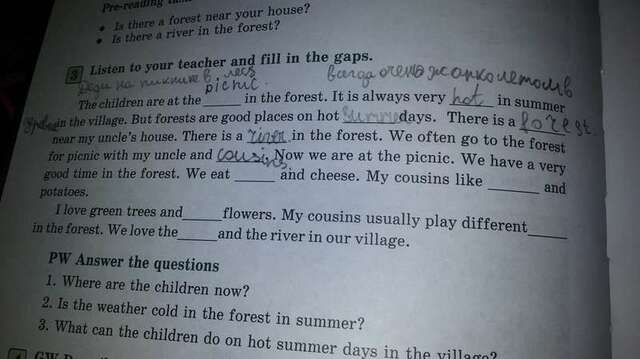 Pre-reading
• Is there a forest near your house?
• Is there a river in the forest?
3 Listen to your teacher and fill in the gaps.
Дети на пикнике в лесу
всегда очень жарко летом в
The children are at the picnic in the forest. It is always very hot in summer
in the village. But forests are good places on hot summer days. There is a forest
near my uncle's house. There is a river in the forest. We often go to the forest
for picnic with my uncle and cousins. Now we are at the picnic. We have a very
good time in the forest. We eat _____ and cheese. My cousins like _______ and
potatoes.
I love green trees and _____ flowers. My cousins usually play different _____
in the forest. We love the _____ and the river in our village.
PW Answer the questions
1. Where are the children now?
2. Is the weather cold in the forest in summer?
3. What can the children do on hot summer days in the village?
GW